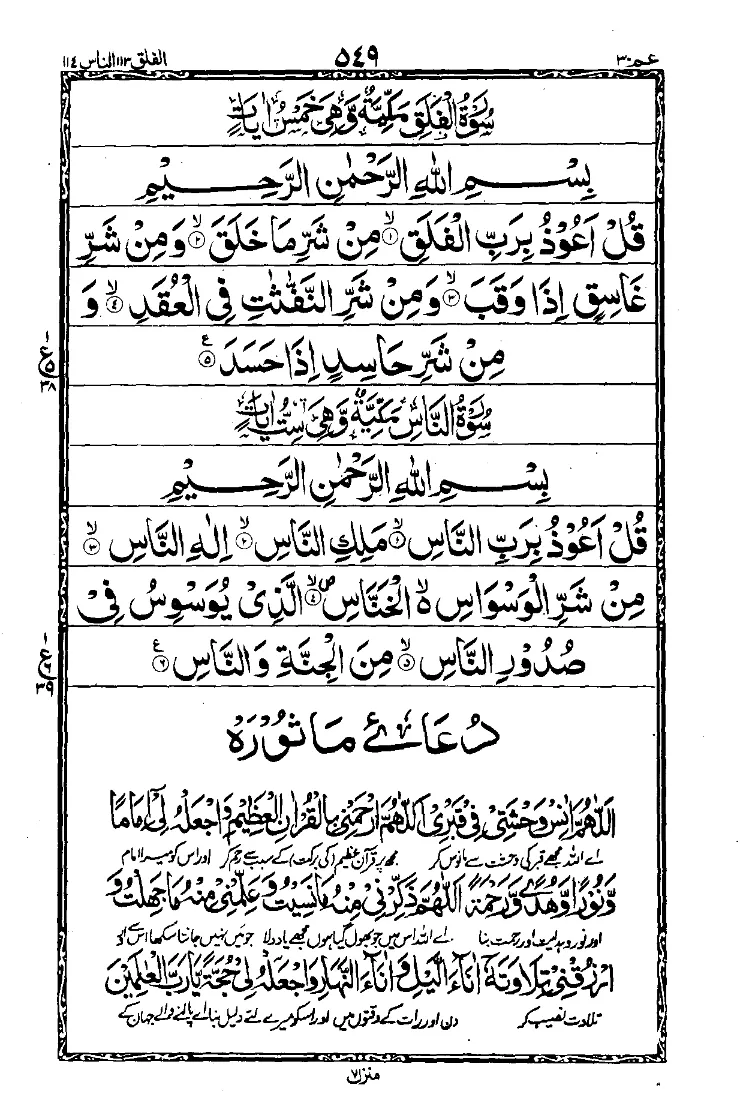 عم ٣٠ ٥٤٩ الفلق ١١٣ الناس ١١٤
سُوْرَةُ الْفَلَقِ مَكِّيَّةٌ وَّهِيَ خَمْسُ اٰيَاتٍ
بِسْمِ اللّٰهِ الرَّحْمٰنِ الرَّحِيْمِ
قُلْ اَعُوْذُ بِرَبِّ الْفَلَقِ ۙ‏﴿١﴾ مِنْ شَرِّ مَا خَلَقَ ۙ‏﴿٢﴾ وَمِنْ شَرِّ
غَاسِقٍ اِذَا وَقَبَ ۙ‏﴿٣﴾ وَمِنْ شَرِّ النَّفّٰثٰتِ فِى الْعُقَدِ ۙ‏﴿٤﴾ وَ
مِنْ شَرِّ حَاسِدٍ اِذَا حَسَدَ ﴿٥﴾ ع
سُوْرَةُ النَّاسِ مَكِّيَّةٌ وَّهِيَ سِتُّ اٰيَاتٍ
بِسْمِ اللّٰهِ الرَّحْمٰنِ الرَّحِيْمِ
قُلْ اَعُوْذُ بِرَبِّ النَّاسِ ۙ‏﴿١﴾ مَلِكِ النَّاسِ ۙ‏﴿٢﴾ اِلٰهِ النَّاسِ ۙ‏﴿٣﴾
مِنْ شَرِّ الْوَسْوَاسِ ۙ۬ الْخَنَّاسِ ۙ‏﴿٤﴾ الَّذِىْ يُوَسْوِسُ فِىْ
صُدُوْرِ النَّاسِ ۙ‏﴿٥﴾ مِنَ الْجِنَّةِ وَالنَّاسِ ﴿٦﴾ ع
دُعَائے مَاثُوْرَہ
اَللّٰهُمَّ اٰنِسْ وَحْشَتِىْ فِىْ قَبْرِىْ اَللّٰهُمَّ ارْحَمْنِىْ بِالْقُرْاٰنِ الْعَظِيْمِ وَاجْعَلْهُ لِىْ اِمَامًا
اے اللہ مجھے قبر کی وحشت سے مانوس کر مجھ پر قرآن عظیم (کی برکت) کے سبب سے رحم کر اور اس کو میرا امام
وَّنُوْرًا وَّهُدًى وَّرَحْمَةً اَللّٰهُمَّ ذَكِّرْنِىْ مِنْهُ مَا نَسِيْتُ وَعَلِّمْنِىْ مِنْهُ مَا جَهِلْتُ وَ
اور نور و ہدایت اور رحمت بنا اے اللہ اس میں جو بھول گیا ہوں مجھے یاد دلا جو میں نہیں جانتا سکھا اس سے اور
ارْزُقْنِىْ تِلَاوَتَهٗ اٰنَآءَ الَّيْلِ وَاٰنَآءَ النَّهَارِ وَاجْعَلْهُ لِىْ حُجَّةً يَّا رَبَّ الْعٰلَمِيْنَ
تلاوت نصیب کر دن اور رات کے وقتوں میں اور اس کو میرے لئے دلیل بنا اے پالنے والے جہان کے
منزل ٧